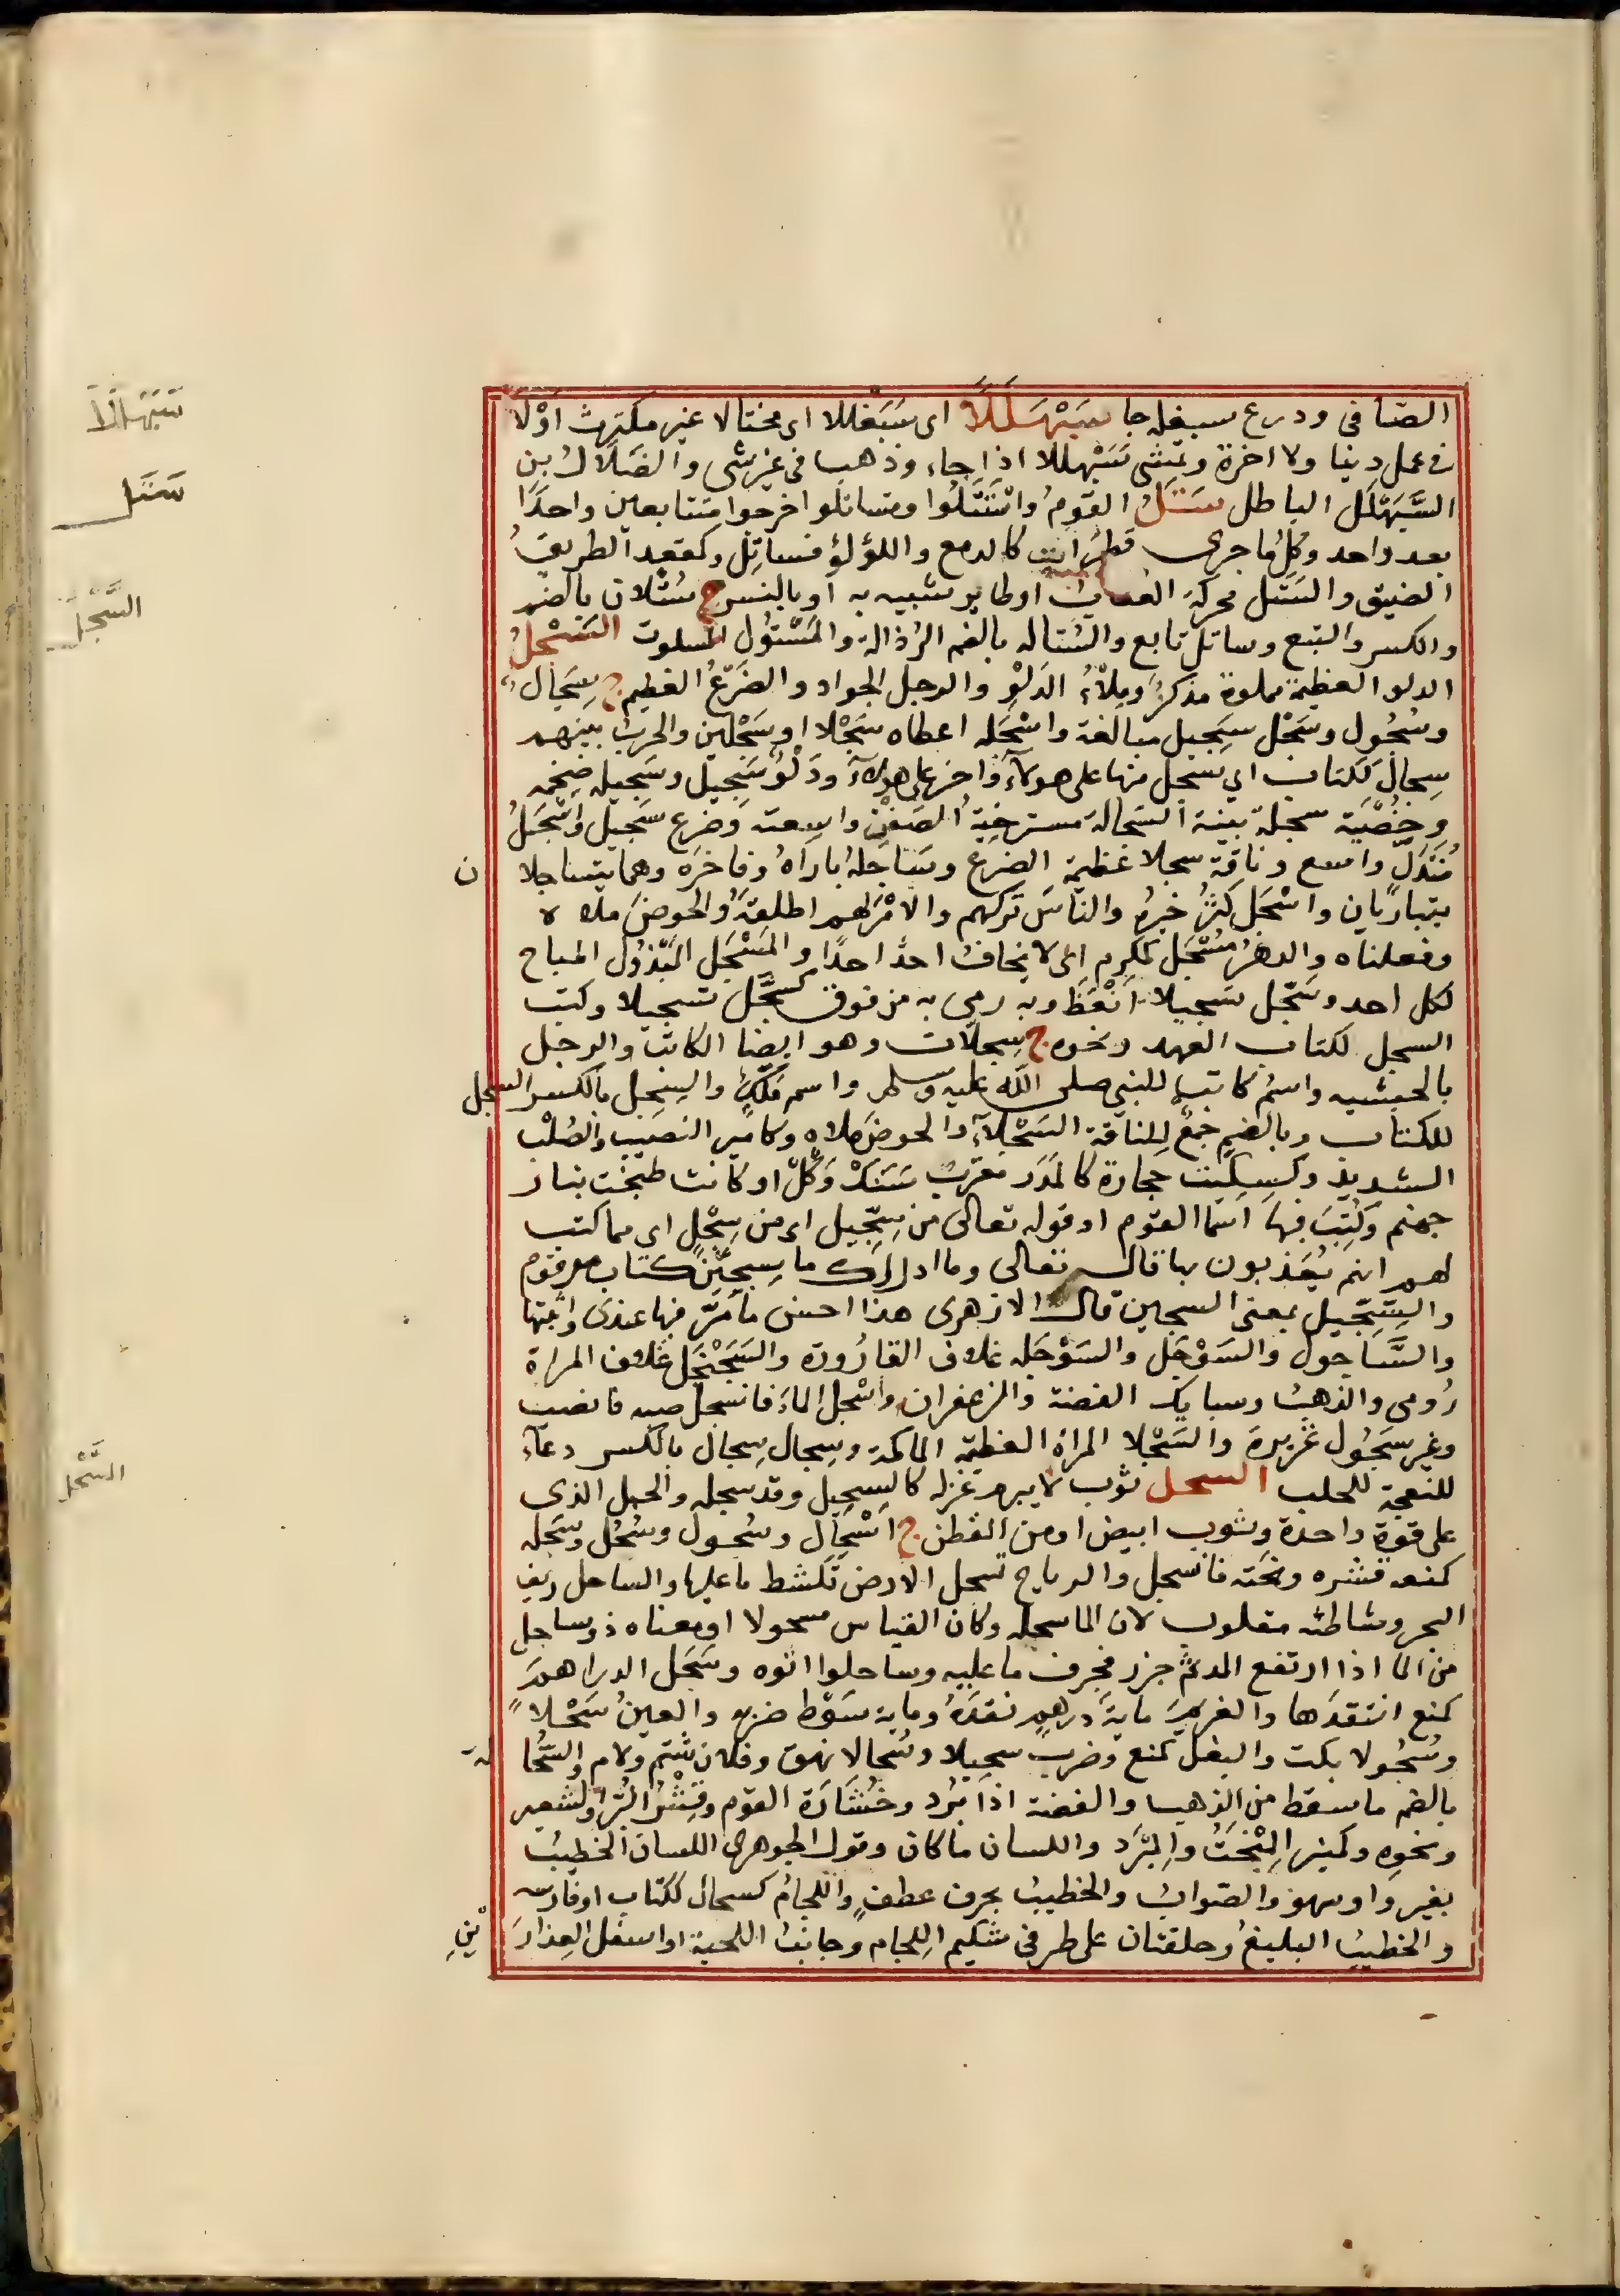 الضافى ودرع سبغله جا سَبَهْلَلًا اى سَبَغْللا اى مختالا غير مكترث اوْلا
فى عمل دنيا ولا اخرة ويمشى سَبَهْللا اذا جاء وذهب فى غير شى والضَلَال بن
السَّبَهْلَل الباطل سَتَلَ القومُ وانْسَتَلُوا وتساتلوا اخرجوا متتابعين واحدًا
بعد واحد وكل ما جرى قطرانه كالدمع واللؤلؤ فساتل وكمقعد الطريق
الضيق والسَتَل محركة العقاب اوطاير شبيه به اوبالنسر ج سُتْلان بالضم
والكسر والتبع وساتل تابع والسُتاله بالضم الرُذالة والمَسْتُول المسلوت السَّجْلُ
الدلو العظيمة مملوة مذكرٌ ومِلْءُ الدَلْوِ والرجل الجواد والضَرْعُ العظيم ج سِجَال
وسُجُول وسَجْل سَجِيل مبالغة واسْجَله اعطاه سَجْلا اوسَجْلين والحربُ بينهم
سِجالٌ ككتاب اى سجل منها على هولآء واخر على هولآء ودَلْوٌ سَجِيل وسَجِيله ضخمه
وخُصْيَة سجلة بينة السَجالة مسترخية الصَفَن واسعته وضرع سَجيل واَسْجَلُ
مُتَدَلٍّ واسع وناقة سجلا عظيمة الضرع وساجله باراه وفاخره وهما يتساجلان
يتباريان واسْجَل كَثُرَ خيره والناسَ تركهم والامْرَ لهم اطلقهُ والحوضَ ملاه
وفعلناه والدهرُ مُسْجَل كمكرم اى لا يخاف احدٌ احدًا والمُسْجَل المبْذُول المباح
لكل احد وسَجّل تسجيلا اَنْعَظَ وبه رمى به من فوق كسَجَل تسجيلا وكتب
السجل لكتاب العهد ونحوه ج سِجِلّات وهو ايضا الكاتب والرجل
بالحبشيه واسمُ كاتب للنبى صلى الله عليه وسلم واسم مَلَكٍ والسِجِل بالكسر السجل
للكتاب وبالضم جمعٌ للناقة السَجْلآءِ والحوضَ ملاه وكامير النَصيب والصُلْب
الشديد وكسِكِّيت حجارة كالمَدَر معرّب سَنْكْ وَكِلْ او كانت طبخت بنار
جهنم وكُتِبَ فيها اسما القوم او قوله تعالى من سِجِّيل اى من سِجِلٍّ اى مما كتب
لهم انهم يُعَذبون بها قال تعالى وما ادراك ما سِجِّينٌ كتاب مرقوم
والسِجِّيل بمعنى السجين قال الازهرى هذا احسن ما مَرّ فيها عندى واثبتها
والسَّاجول والسَوْجَل والسَوْجَله غلاف القارُورة والسَجَنْجَل غلاف المراة
رُومى والذهبُ وسبايك الفضة والزعفران واسْجل الماءَ فانسجل صبه فانصب
وغير سَجُول غزيرة والسَجْلا المراة العظيمة الماكمة وسِجال سِجال بالكسر دعآء
للنعجة للحلب السحل ثوب لا يبرم غزله كالسحِيل وقد سحله والحبل الذى
على قوة واحدة وثوب ابيض اومن القطن ج اسْحَال وسُحول وسُحُل وسَحَله
كمنعه قشره ونحته فانسحل والرياح تسحل الارض تكشط ما عليها والساحل ريف
البحر وشاطئه مقلوب لان الما سحله وكان القياس مسحولا اومعناه ذوساحل
من الما اذا ارتفع المد ثم جزر فجرف ما عليه وساحلوا اتوه وسَحَل الدراهمَ
كمنع انتقدَها والغريمَ مايةَ درهم نقدَهُ وماية سَوْط ضربه والعينُ سَحْلا
وسُحُولا بكت والبغل كمنع وضرب سحيلا وسُحالا نهق وفلان شتم ولام والسُّحَالةَ
بالضم ما سقط من الذهب والفضة اذا بُرِد وخُشَارَة القوم وقِشْرُ البُرّ والشعير
ونحوه وكمنبر المِنْحَتُ والمِبْرَد واللسان ما كان وقول الجوهرى اللسان الخطيب
بغير واو سهو والصّوابُ والخطيب بحرف عطفٍ واللجامُ كسحال ككتاب اوفارسه
والخطيبُ البليغُ وحلقتان على طرفى شكيم اللجام وجانبُ اللحية اواسفل العِذارَيْنِ
سَبَهْلَلاً
سَتَل
السَّجْل
السَّحْل